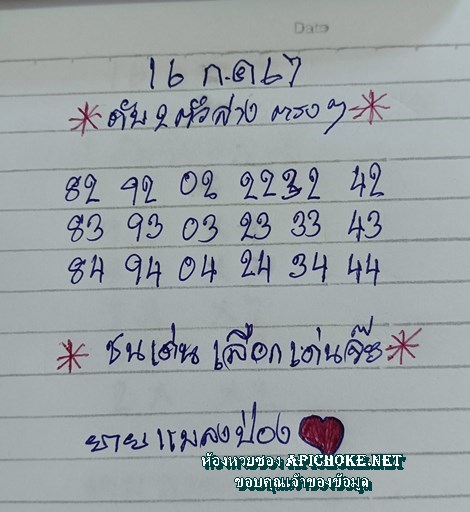 Date
16 ก.ค 67
* ดับ 2 ตัวล่าง ตรงๆ *
82 92 02 22 32 42
83 93 03 23 33 43
84 94 04 24 34 44
* ชนเด่น เลือกเด่นจ๊ะ *
ยายแมลงป่อง
ห้องหวยซอง APICHOKE.NET
ขอบคุณเจ้าของข้อมูล